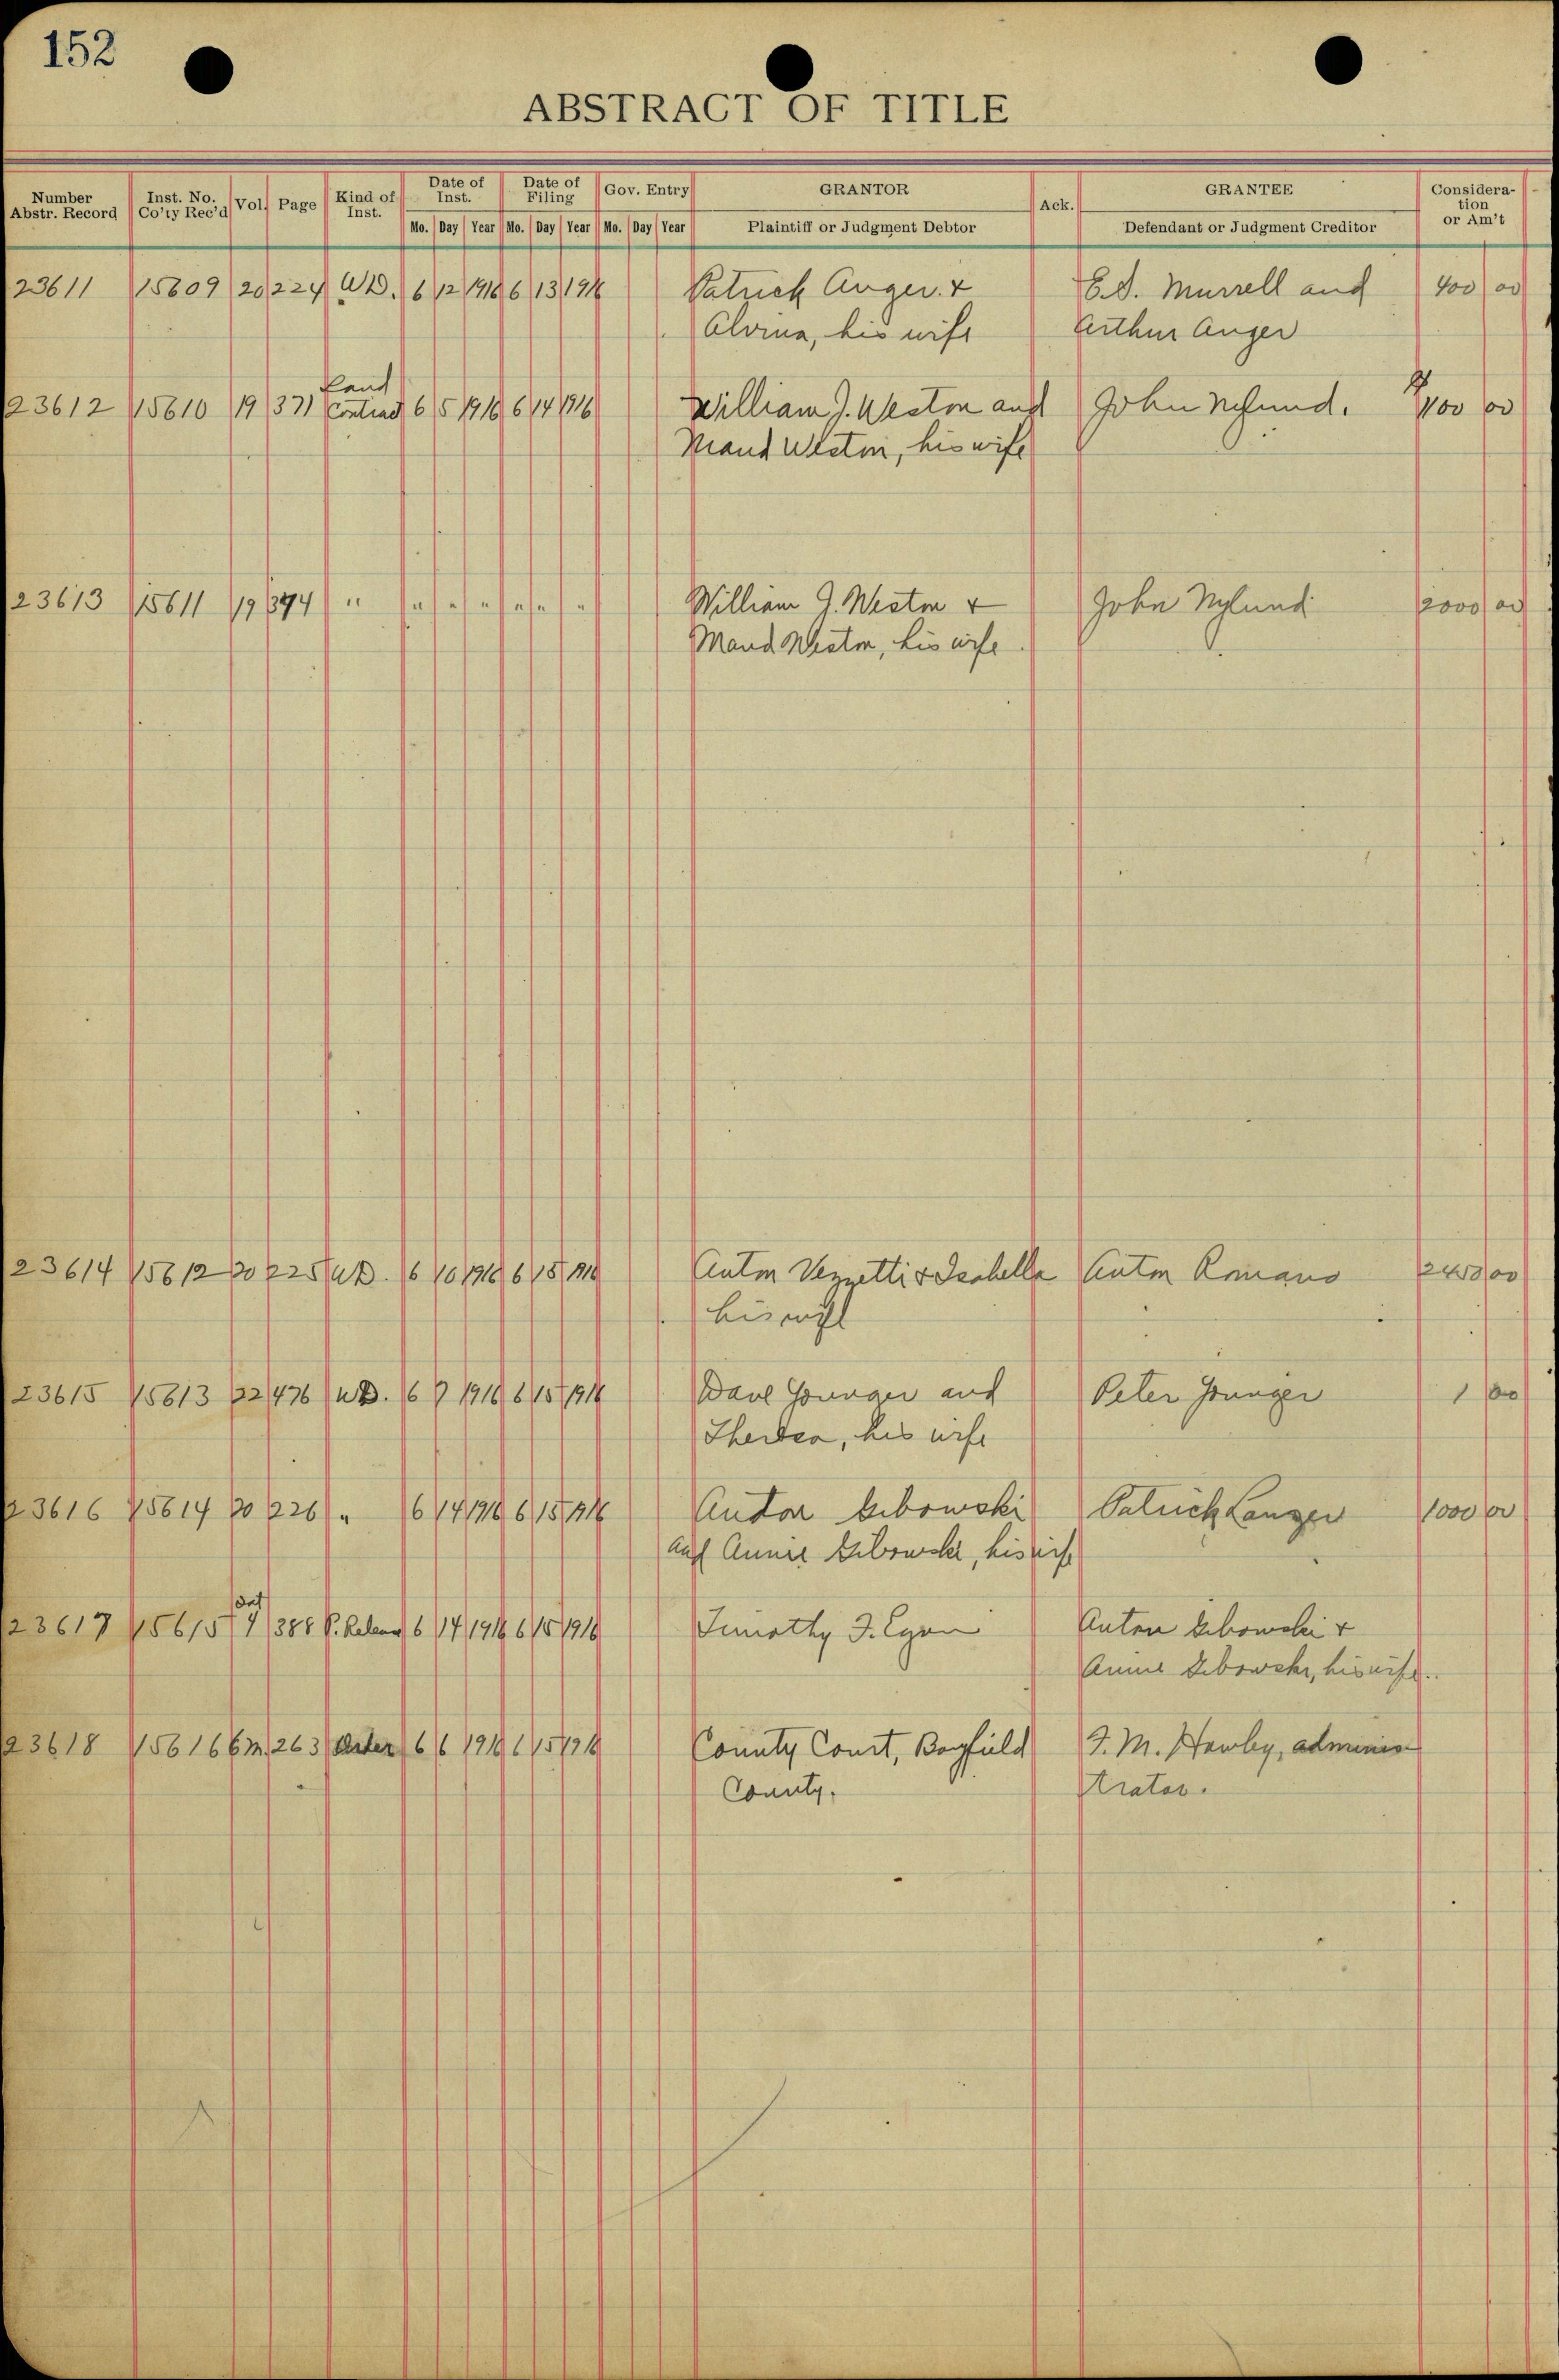 152
ABSTRACT OF TITLE
Number Abstr. Record Inst. No. Co'ty Rec'd Vol. Page Kind of Inst. Date of Inst. Mo. Day Year Date of Filing Mo. Day Year Gov. Entry Mo. Day Year GRANTOR Plaintiff or Judgment Debtor Ack. GRANTEE Defendant or Judgment Creditor Considera-tion or Am't
23611 15609 20 224 W.D. 6 12 1916 6 13 1916 Patrick Auger & E.S. Murrell and 400 00
Alvina, his wife Arthur Auger
Land
23612 15610 19 371 Contract 6 5 1916 6 14 1916 William J. Weston and John Nylund. 00
Maud Weston, his wife
23613 15611 19 374 " " " " " " " William J. Weston & John Nylund 2000 00
Maud Weston, his wife
23614 15612 20 225 W.D. 6 10 1916 6 15 1916 Anton Vezzetti & Isabella Anton Romano 2450 00
his wife
23615 15613 22 476 W.D. 6 7 1916 6 15 1916 Younger and Peter Younger 1 00
his wife
23616 15614 20 226 " 6 14 1916 6 15 1916 Anton Patrick 1000 00
and Annie his wife
23617 15615 4 388 P. 6 14 1916 6 15 1916 Timothy F. Anton &
Annie his wife.
23618 15616 6 M. 263 Order 6 6 1916 6 15 1916 County Court, Bayfield F. M. adminis
County. trator.